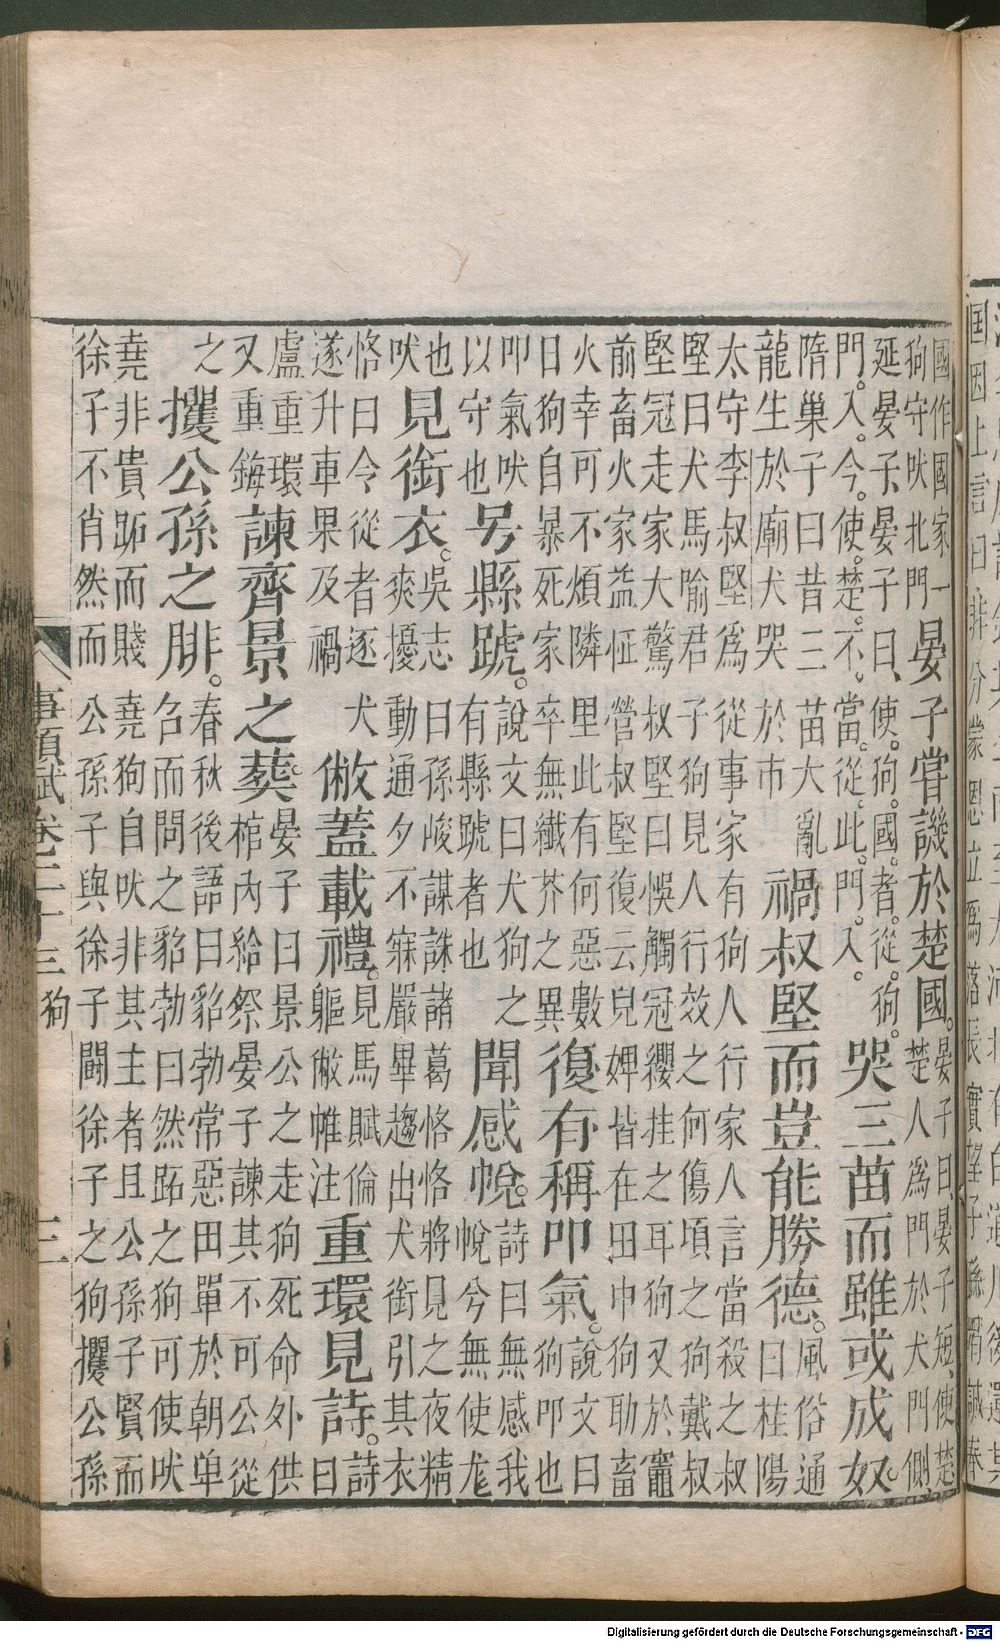 國作國家一
狗守吠北門
晏子甞譏於楚國。
晏子曰晏子短使楚
楚人為門於犬門側
延晏子、晏子曰、使。狗。國。者。從。狗。
門。入。今。使。楚。不。當。從。此。門。入。
哭三苗而雖或成奴。
隋巢子曰昔三苗大亂
龍生於廟犬哭於市
禍叔堅而豈能勝德。
風俗通
曰桂陽
太守李叔堅為從事家有狗人行家人言當殺之叔
堅曰犬馬喻君子狗見人行效之何傷頃之狗戴叔
堅冠走家大驚叔堅曰悞觸冠纓挂之耳狗又於竈
前畜火家益怔營叔堅復云兒婢皆在田中狗助畜
火幸可不煩隣里此有何惡數
日狗自暴死家卒無纖芥之異
復有稱叩氣。
說文曰
狗叩也
叩氣吠
以守也
号縣蹏。
說文曰犬狗之
有縣蹏者也
聞感帨。
詩曰無感我
帨兮無使尨
也
吠
見銜衣。
吳志曰孫峻謀誅諸葛恪恪將見之夜精
爽擾動通夕不寐嚴畢趨出犬銜引其衣
恪曰令從者逐犬
遂升車果及禍
敝蓋載禮。
見馬賦倫
軀敝帷注
重環見詩。
詩
曰
盧重環
又重鋂
諫齊景之葬。
晏子曰景公之走狗死命外供
棺內給祭晏子諫其不可公從
之
攫公孫之腓。
春秋後語曰貂勃常惡田單於朝單
名而問之貂勃曰然跖之狗可使吠
堯非貴跖而賤堯狗自吠非其主者且公孫子賢而
徐子不肖然而公孫子與徐子鬭徐子之狗攫公孫
事類賦卷二十三 狗 三
Digitalisierung gefördert durch die Deutsche Forschungsgemeinschaft - DFG